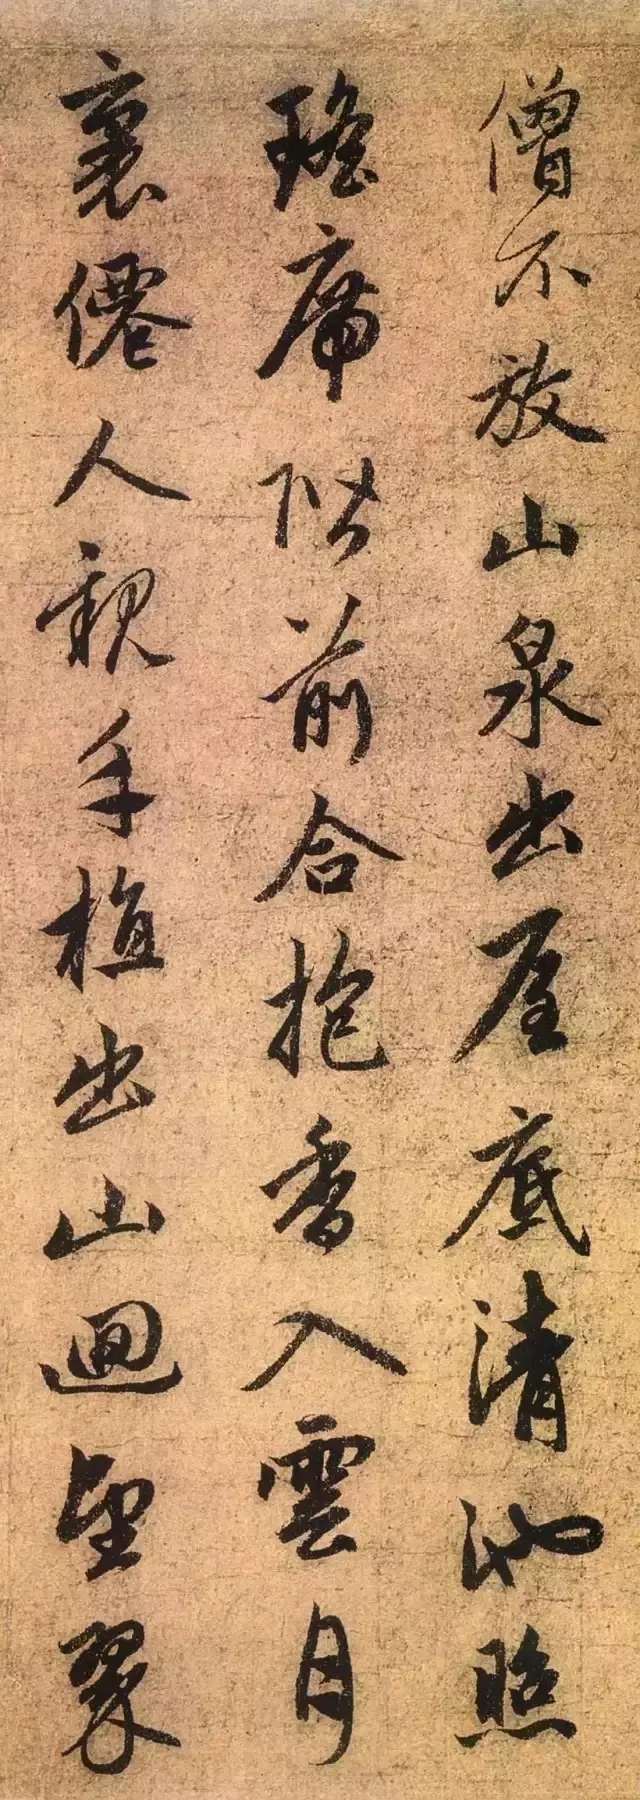 僧不放山泉出屋底清池照
瑤席階前合抱香入雲月
裏僊人親手植出山迴望翠